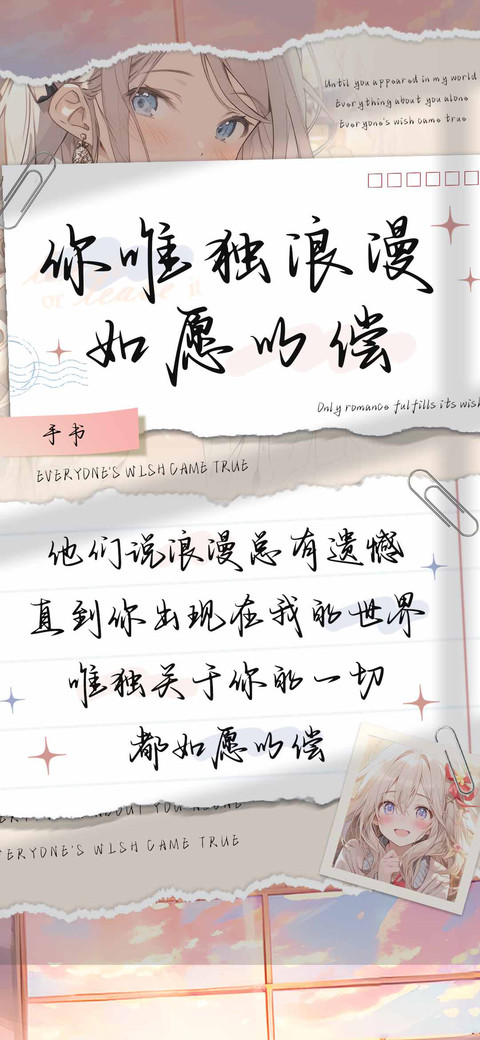 Until you appeared in my world
Everything about you alone
Everyone's wish came true
你唯独浪漫
如愿以偿
Only romance fulfills its wish
手书
EVERYONE'S WISH CAME TRUE
他们说浪漫总有遗憾
直到你出现在我的世界
唯独关于你的一切
都如愿以偿
ABOUT YOU ALONE
EVERYONE'S WISH CAME TRUE